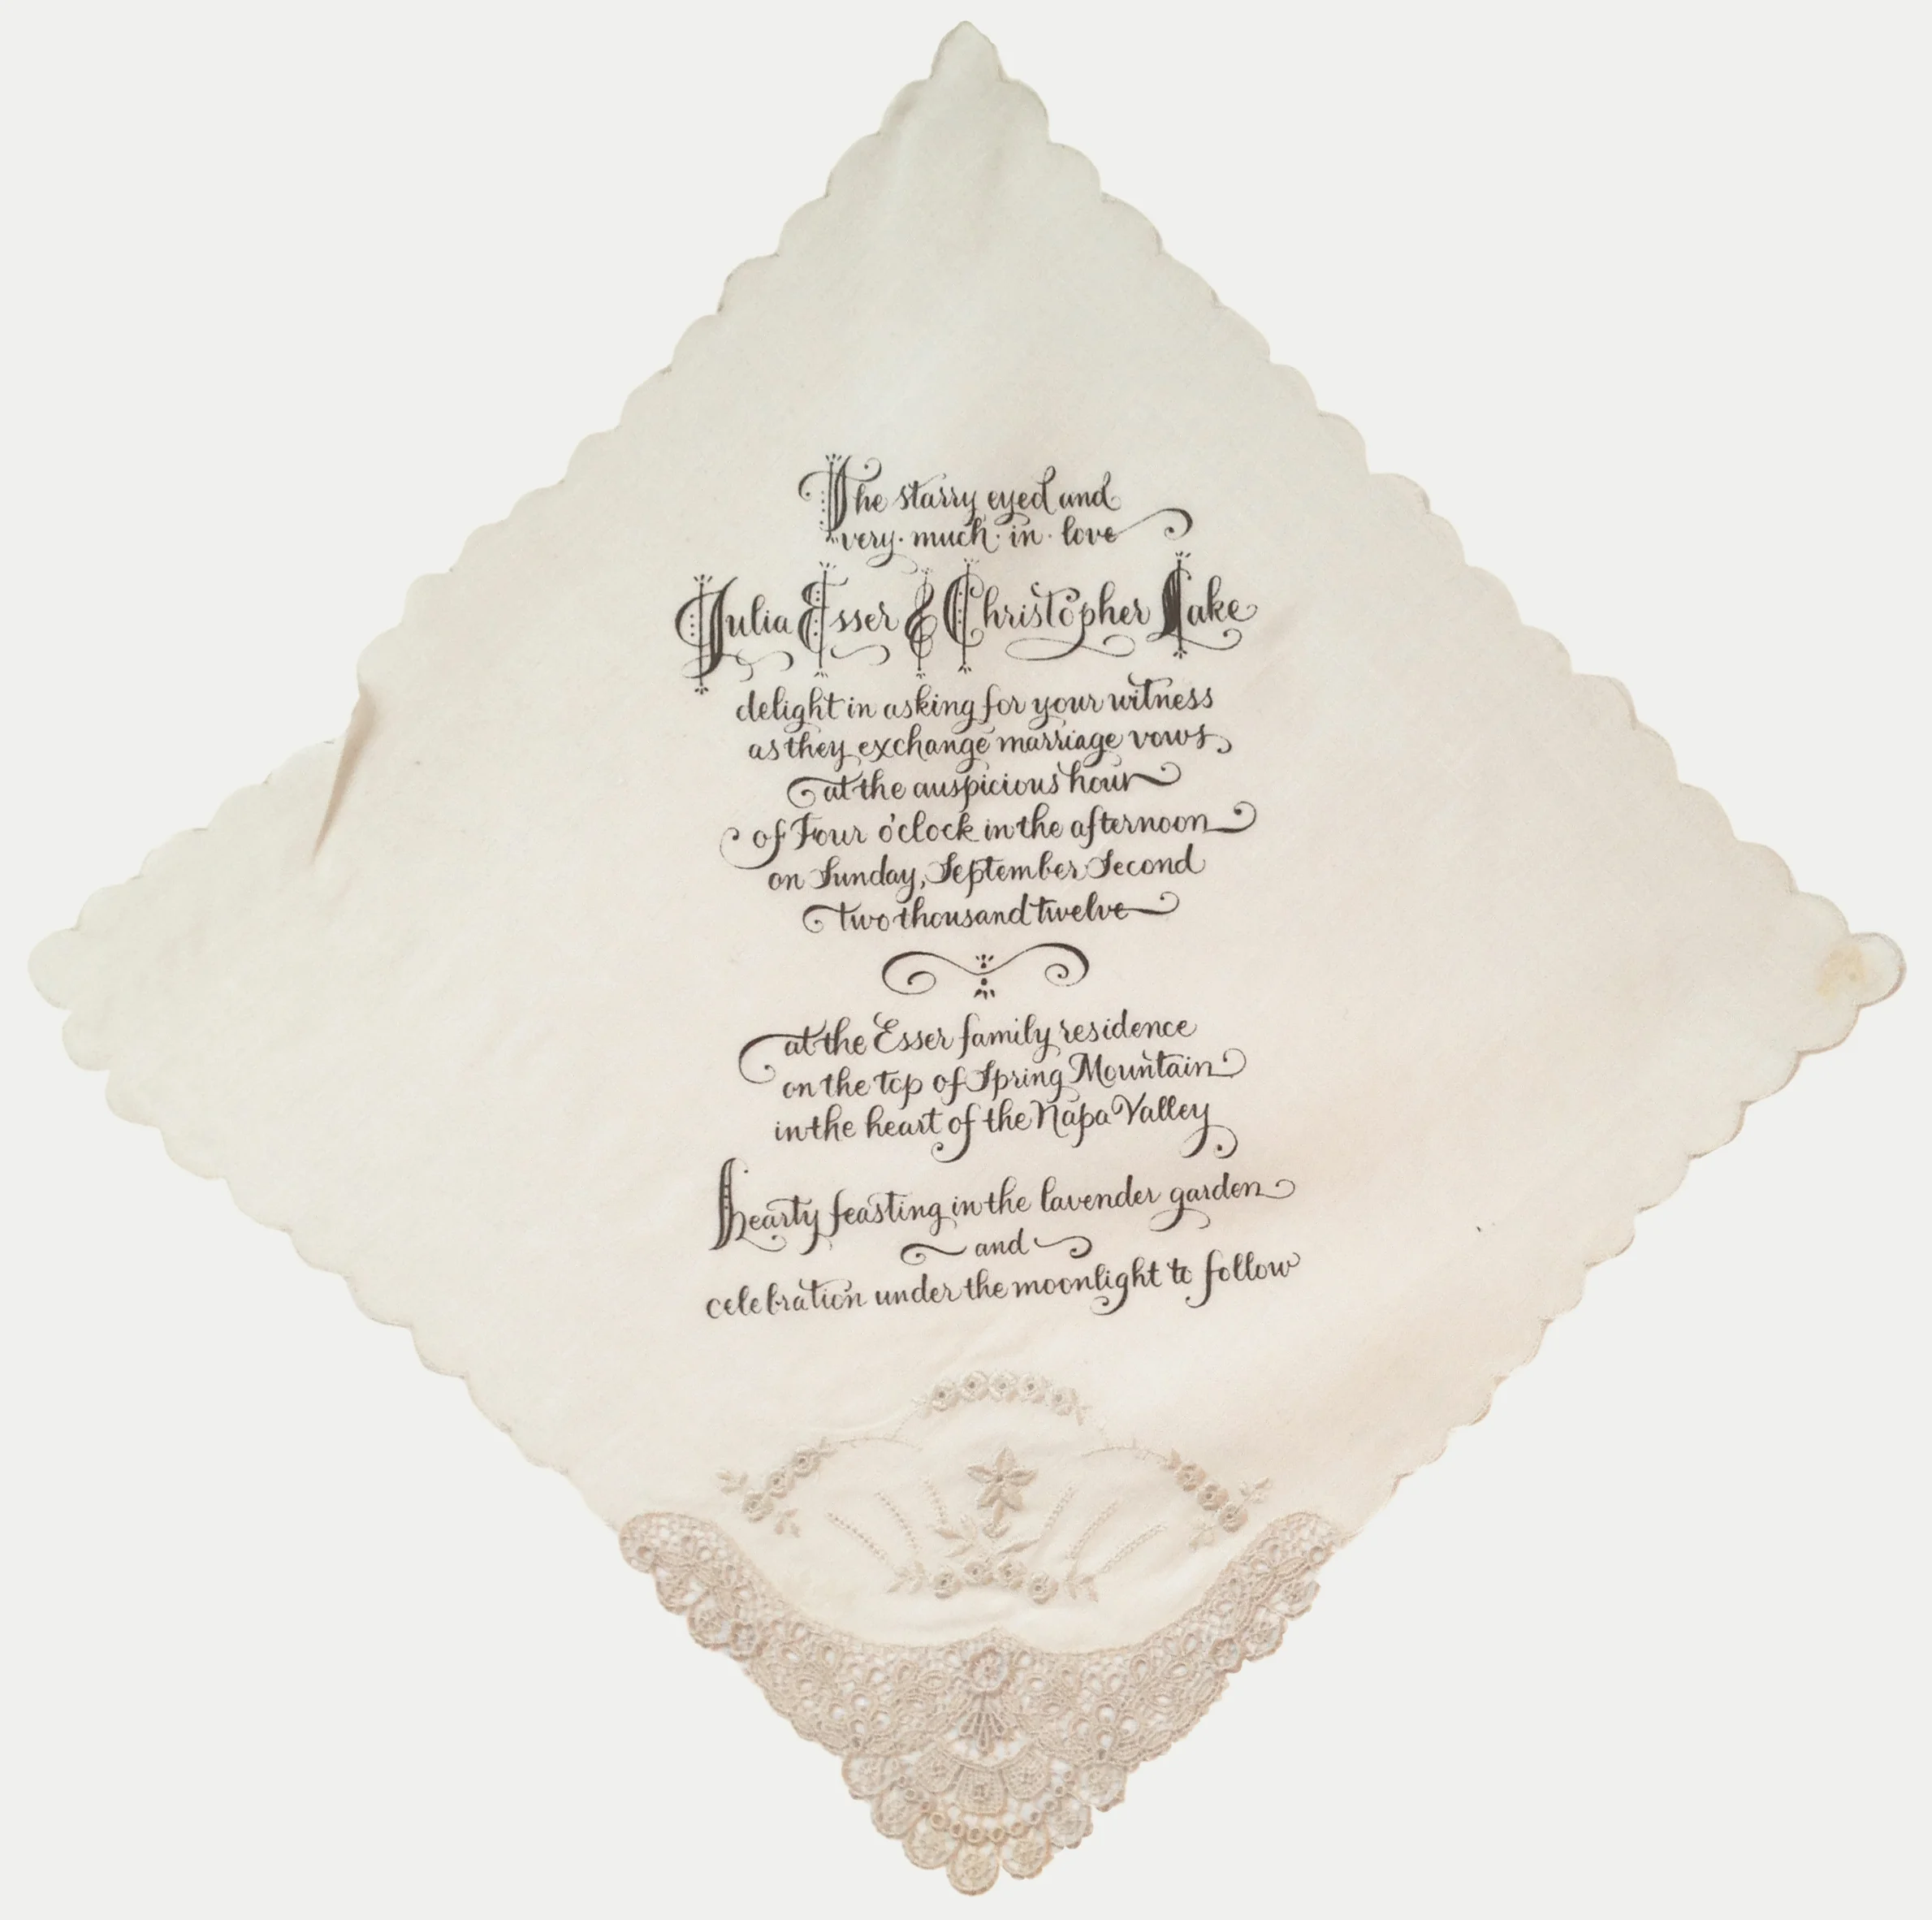 The starry eyed and
very · much · in · love
Julia Esser & Christopher Lake
delight in asking for your witness
as they exchange marriage vows
at the auspicious hour
of Four o'clock in the afternoon
on Sunday, September Second
two thousand twelve
at the Esser family residence
on the top of Spring Mountain
in the heart of the Napa Valley
hearty feasting in the lavender garden
and
celebration under the moonlight to follow